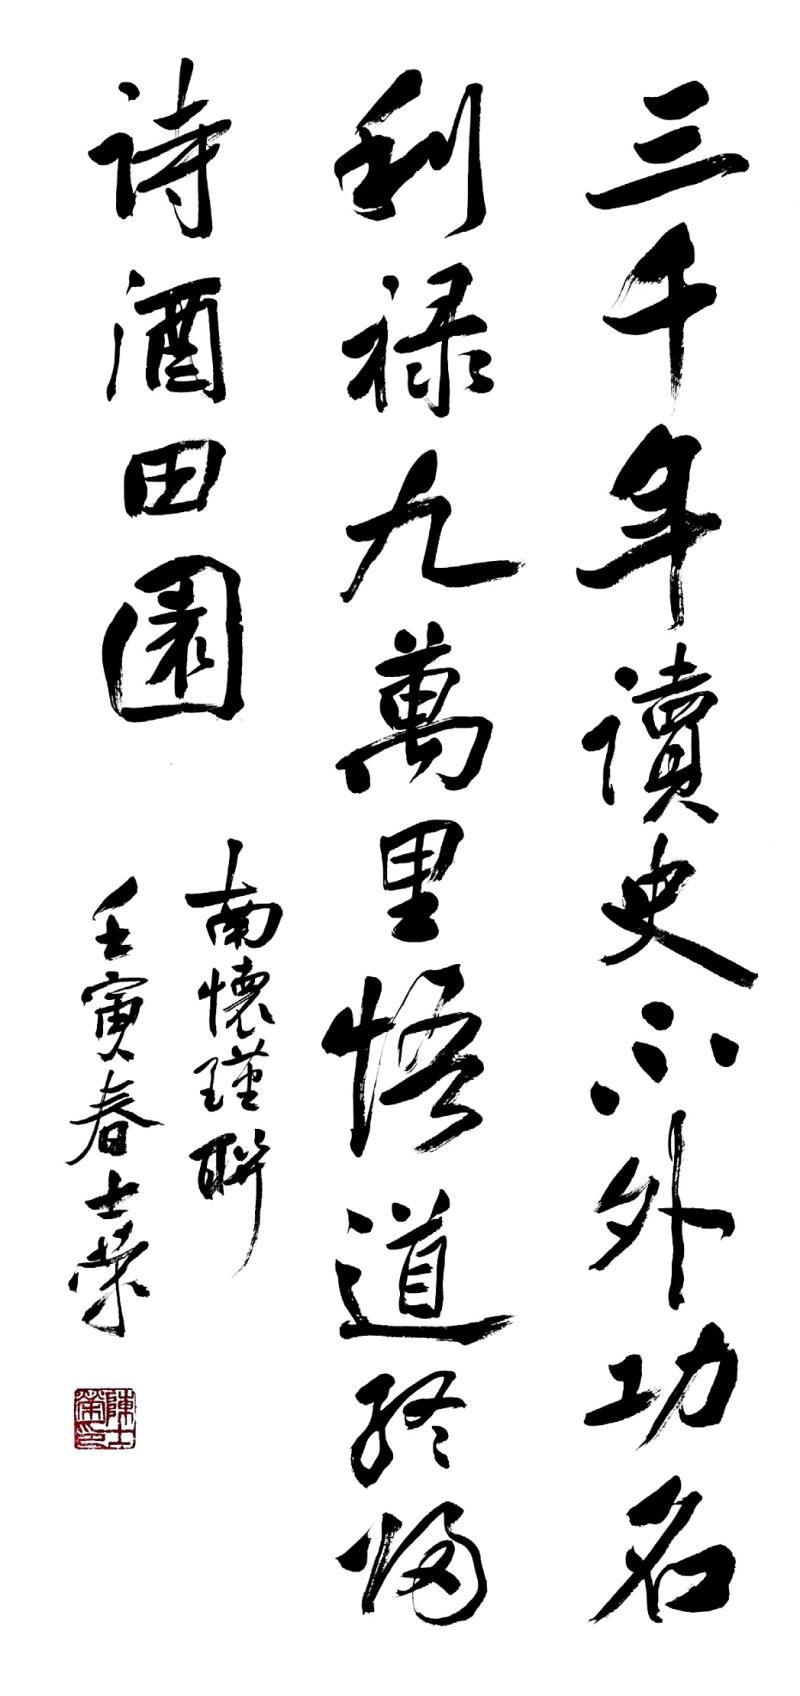 三千年讀史不外功名
利禄九萬里悟道終歸
诗酒田園
南懷瑾聯
壬寅春士榮
陳士榮印